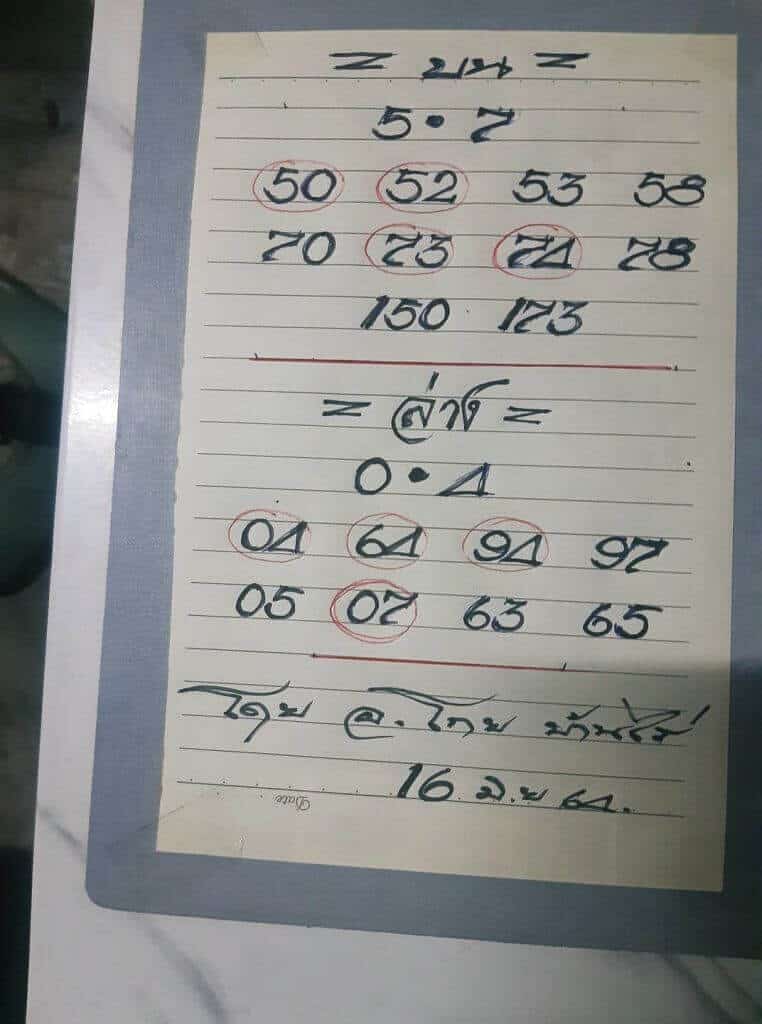 = บน =
5 • 7
50 52 53 58
70 73 74 78
150 173
= ล่าง =
0 • 4
04 64 94 97
05 07 63 65
โดย อ. ไทย บ้านไร่
16 มิ.ย 64.
Date